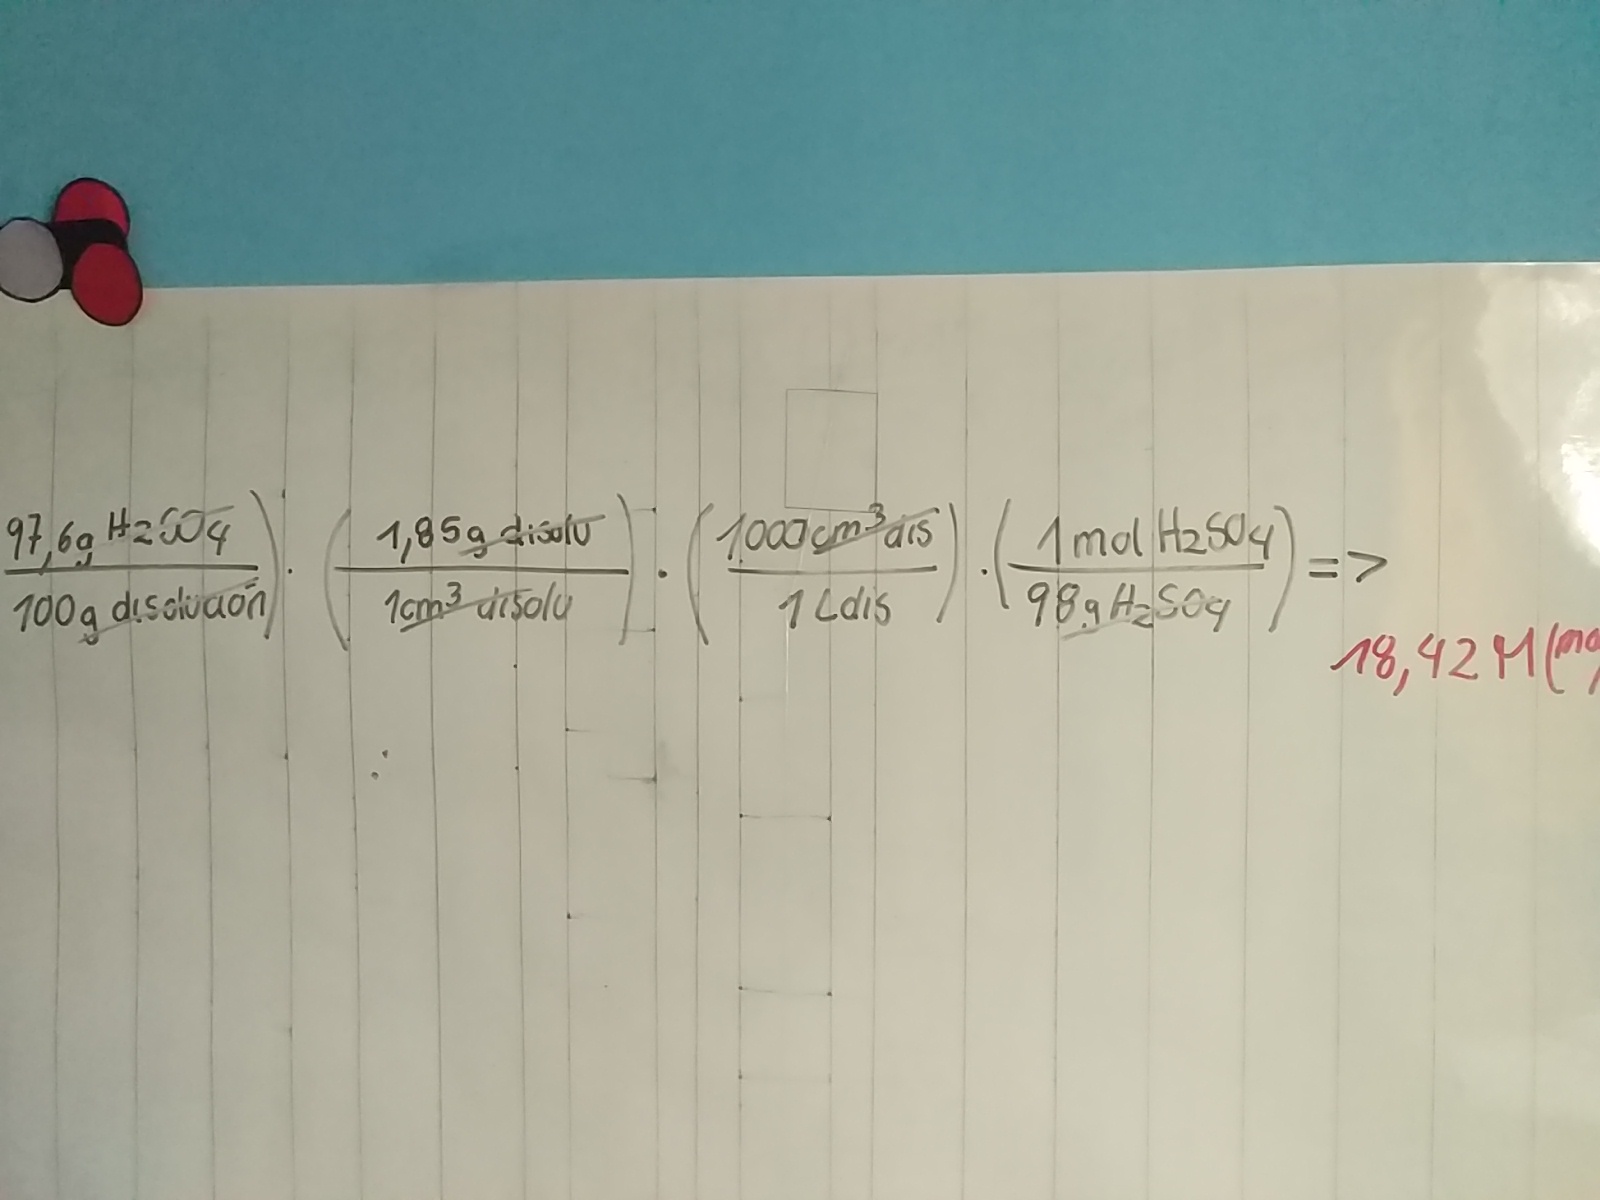 97,6g H2SO4 / 100g disolución) · (1,85g disolu / 1cm³ disolu) · (1000cm³ dis / 1L dis) · (1mol H2SO4 / 98g H2SO4) =>
18,42 M (mo